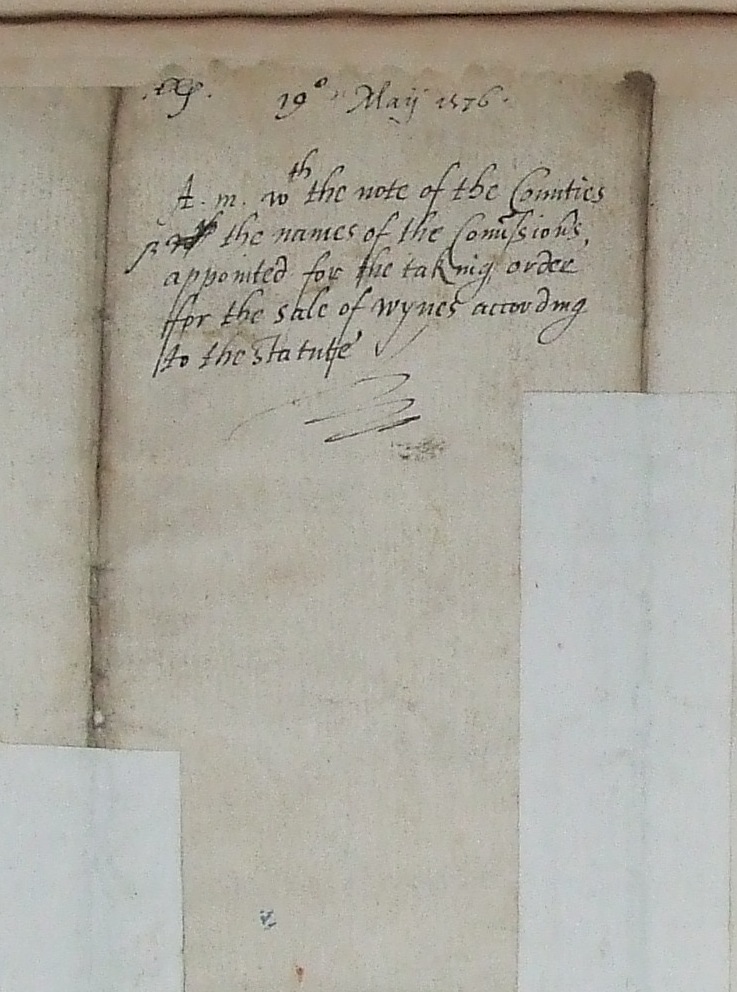 19º Maij 1576.
A. m. wth the note of the Counties
the names of the Comissionrs,
appointed for the taking order
ffor the sale of wynes according
to the Statute